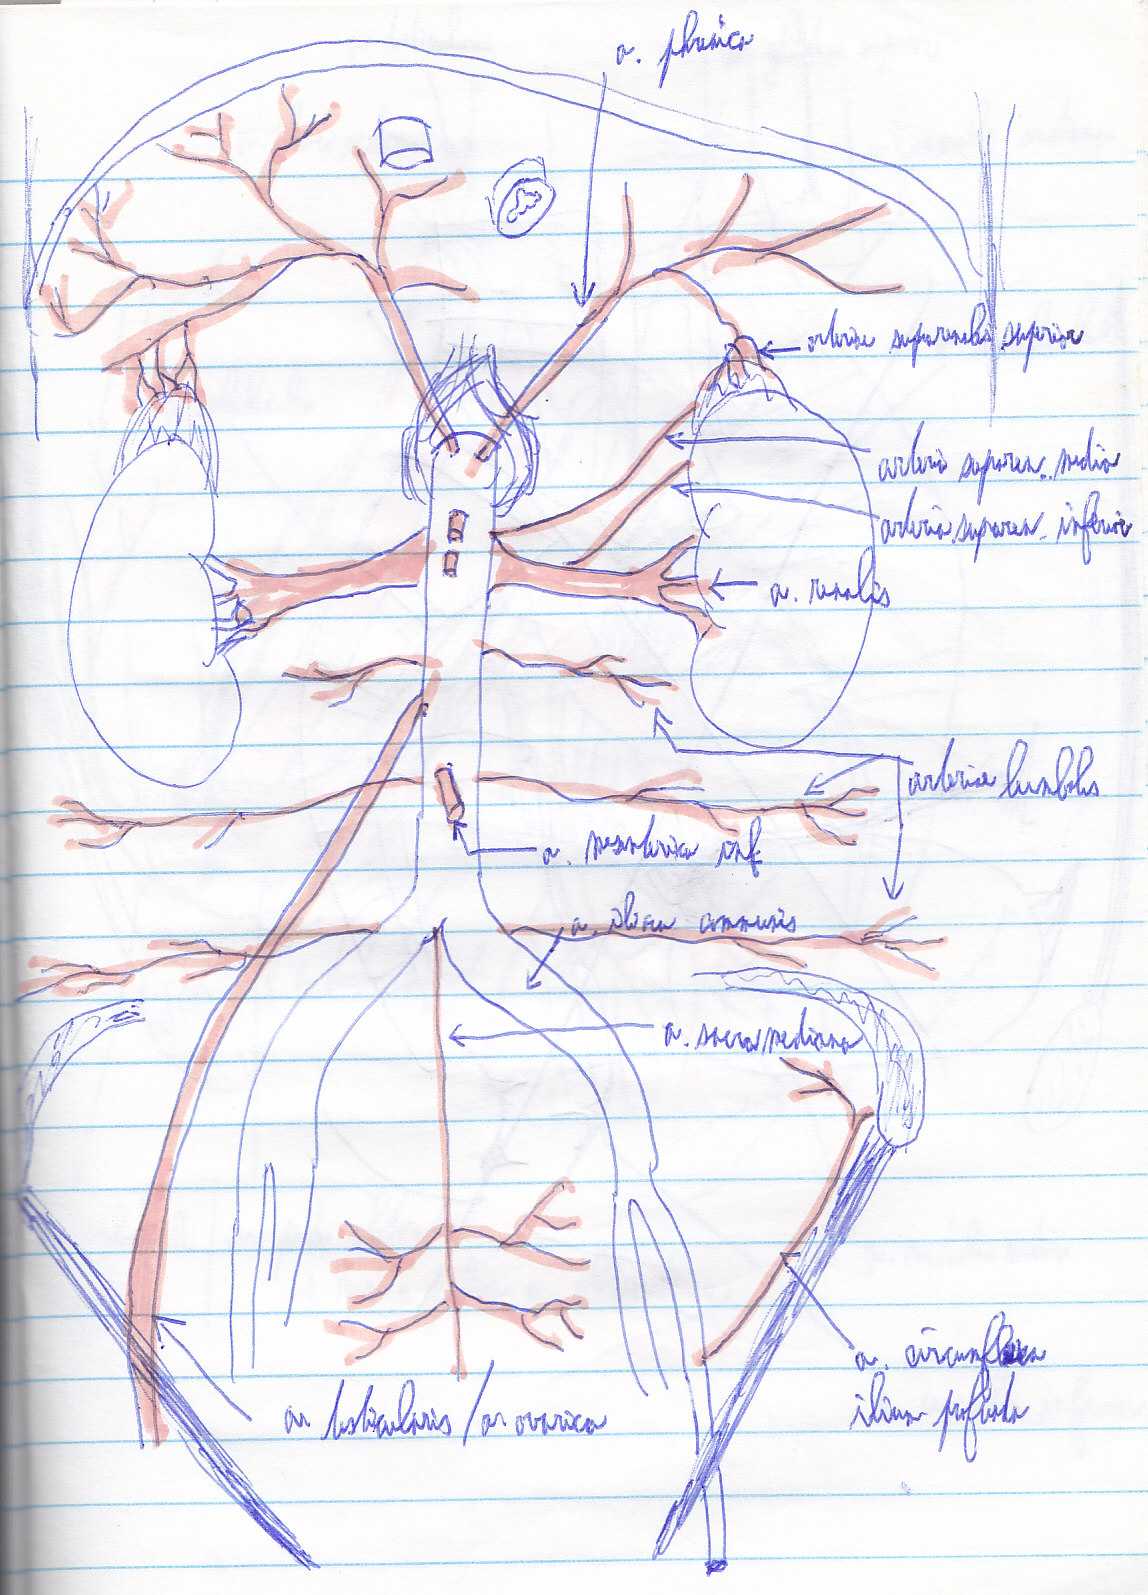 a. phrenica
arteriae suprarenales superior
arteria supraren. media
arteria supraren. inferior
a. renalis
arteriae lumbales
a. mesenterica inf
a. iliaca communis
a. sacra mediana
a. circumflexa
iliaca profunda
a. testicularis / a. ovarica